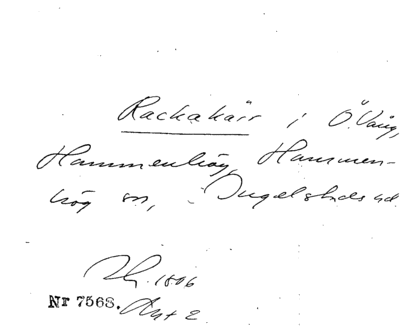 Rackakärr i Ö. Vång,
Hammenhög, Hammen-
hög sn, Ingelstads hd.
1806
Nr 7568. Akt 2